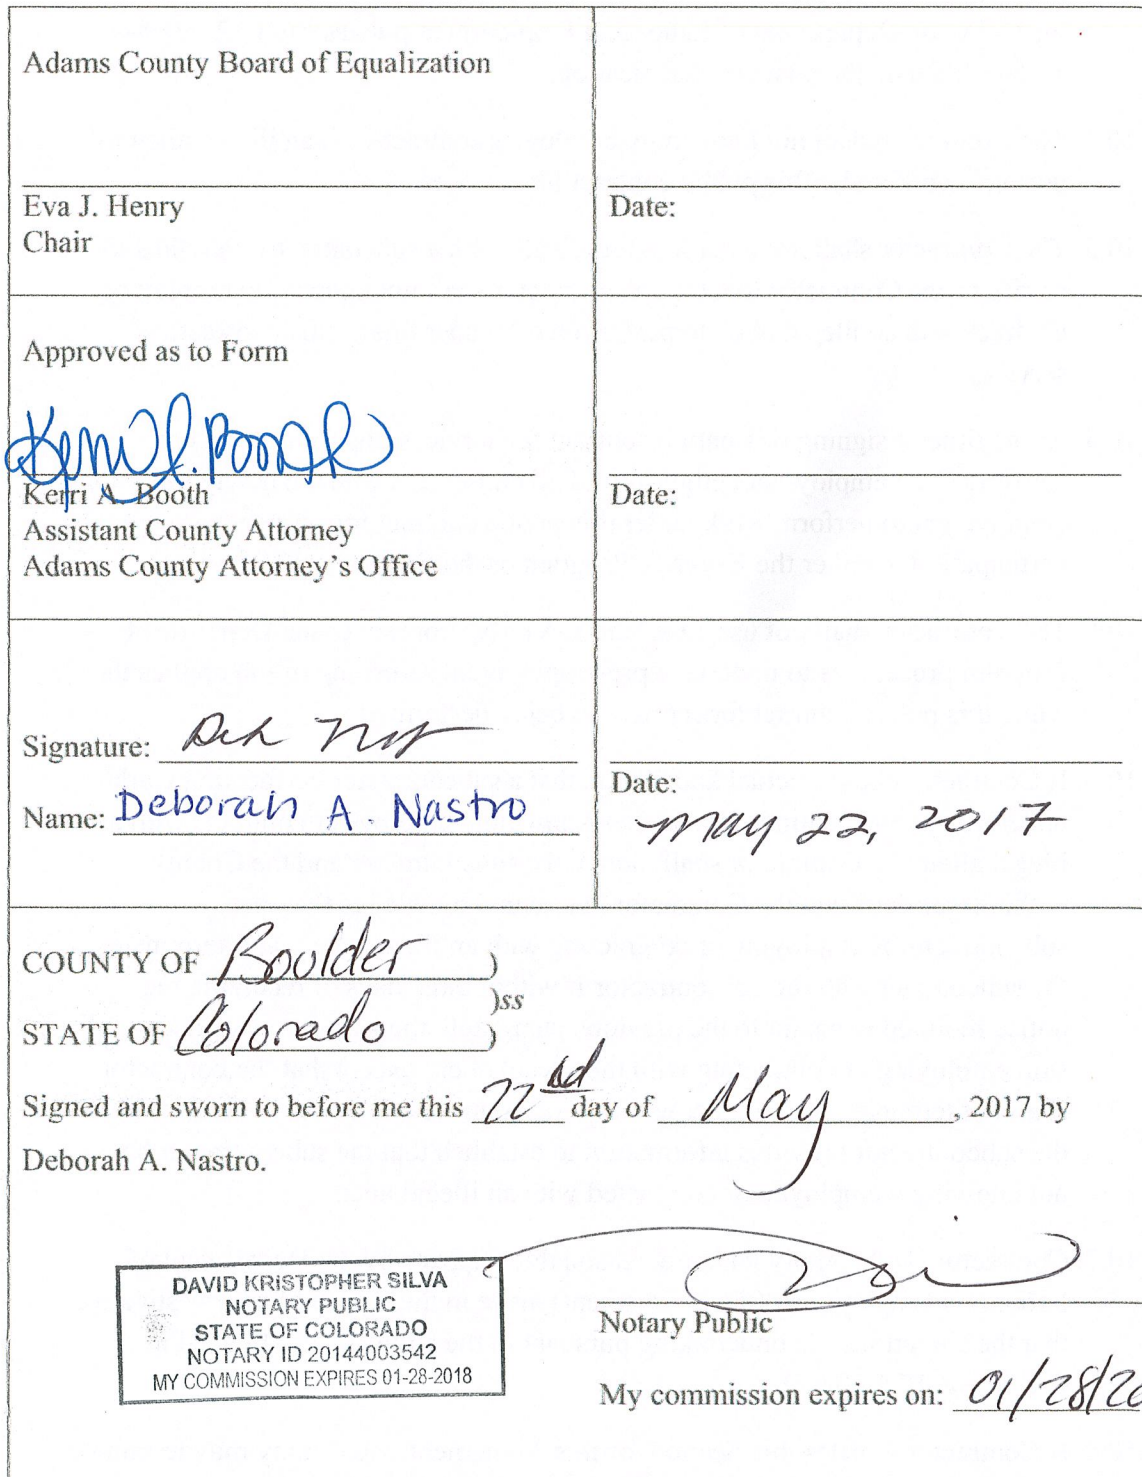 Adams County Board of Equalization
Eva J. Henry
Chair
Date:
Approved as to Form
Kerri A. Booth
Kerri A. Booth
Assistant County Attorney
Adams County Attorney's Office
Date:
Signature:
Name: Deborah A. Nastro
Date:
May 22, 2017
COUNTY OF Boulder )
)ss
STATE OF Colorado )
Signed and sworn to before me this 22nd day of May, 2017 by
Deborah A. Nastro.
DAVID KRISTOPHER SILVA
NOTARY PUBLIC
STATE OF COLORADO
NOTARY ID 20144003542
MY COMMISSION EXPIRES 01-28-2018
Notary Public
My commission expires on: 01/28/20